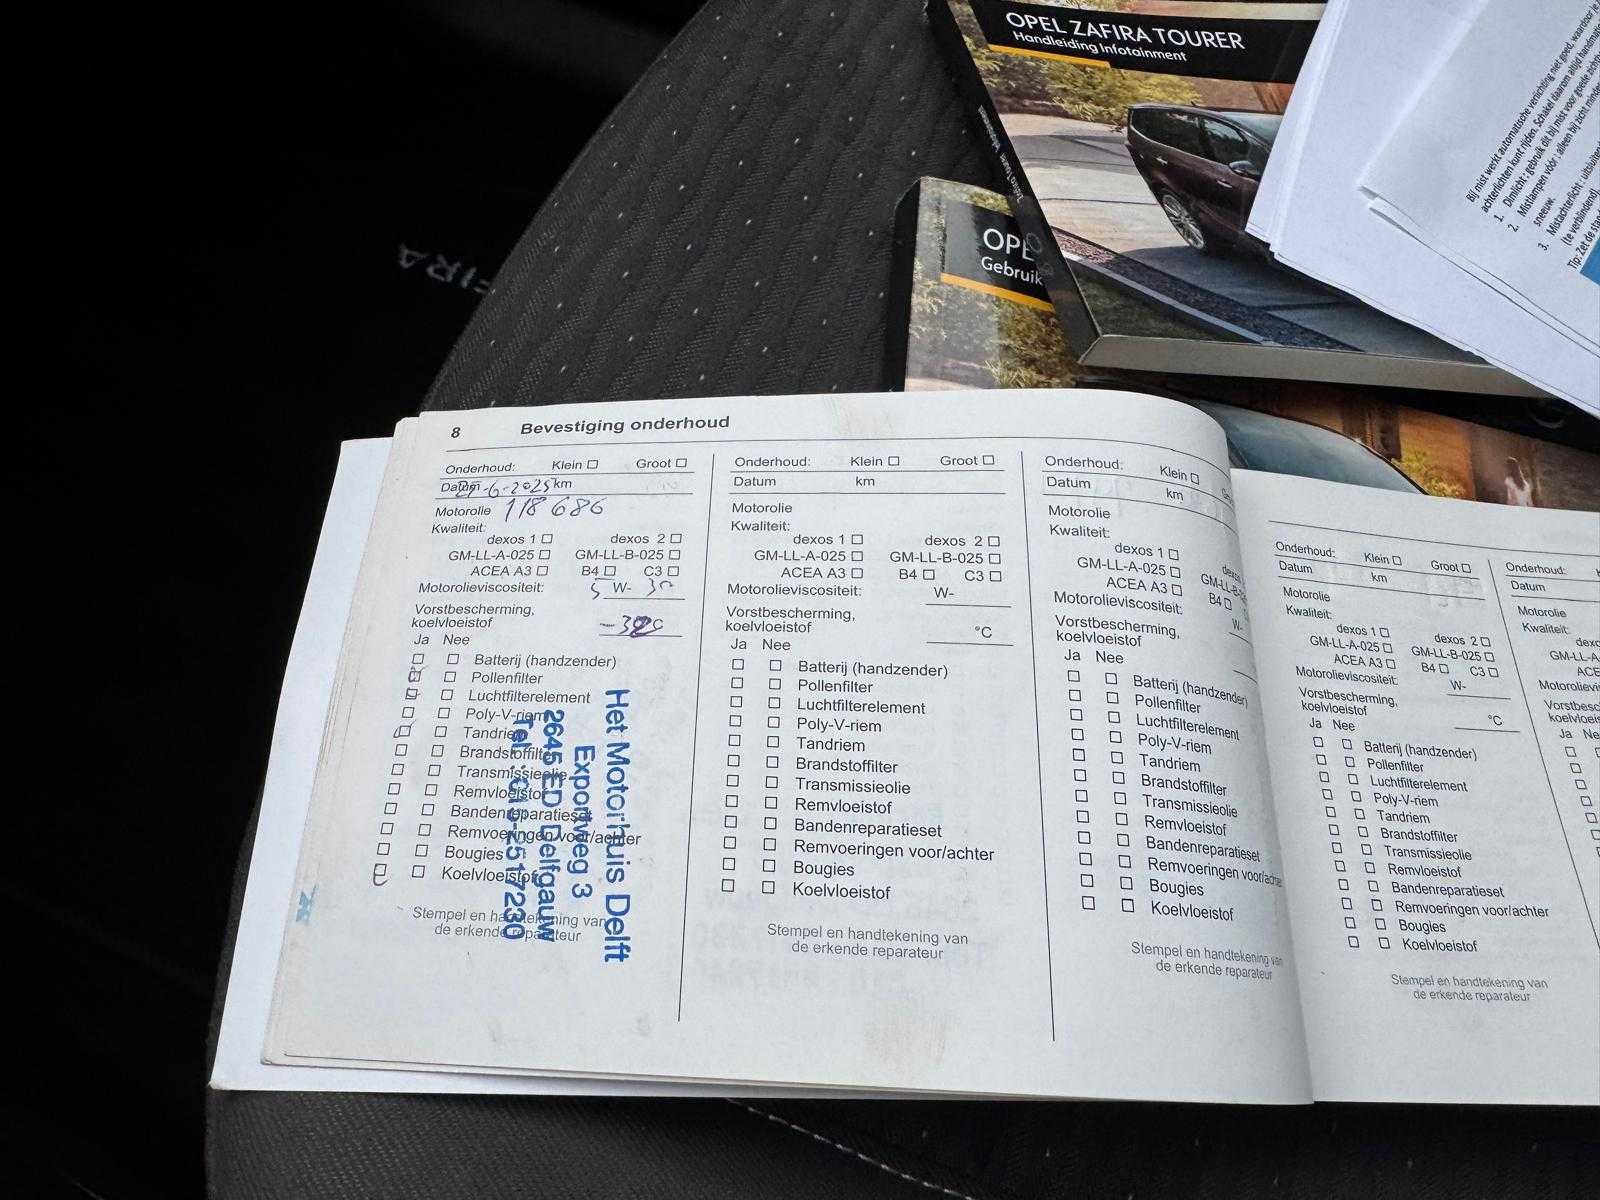 OPEL ZAFIRA TOURER
Handleiding Infotainment
Gebruik
8 Bevestiging onderhoud
Onderhoud: Klein Groot
Datum -6-2025 km
118686
Motorolie
Kwaliteit:
dexos 1 dexos 2
GM-LL-A-025 GM-LL-B-025
ACEA A3 B4 C3
Motorolieviscositeit: 5 W- 30
Vorstbescherming,
koelvloeistof
Ja Nee
Batterij (handzender)
Pollenfilter
Luchtfilterelement
Poly-V-riem
Tandriem
Brandstoffilter
Transmissieolie
Remvloeistof
Bandenreparatieset
Remvoeringen voor/achter
Bougies
Koelvloeistof
Stempel en handtekening van
de erkende reparateur
Het Motorhuis Delft
Exportweg 3
2645 ED Delfgauw
Tel.: 015-2517230
Onderhoud: Klein Groot
Datum km
Motorolie
Kwaliteit:
dexos 1 dexos 2
GM-LL-A-025 GM-LL-B-025
ACEA A3 B4 C3
Motorolieviscositeit: W-
Vorstbescherming,
koelvloeistof °C
Ja Nee
Batterij (handzender)
Pollenfilter
Luchtfilterelement
Poly-V-riem
Tandriem
Brandstoffilter
Transmissieolie
Remvloeistof
Bandenreparatieset
Remvoeringen voor/achter
Bougies
Koelvloeistof
Stempel en handtekening van
de erkende reparateur
Onderhoud: Klein
Datum km
Motorolie
Kwaliteit:
dexos 1
GM-LL-A-025
ACEA A3 B4
Motorolieviscositeit: W-
Vorstbescherming,
koelvloeistof
Ja Nee
Batterij (handzender)
Pollenfilter
Luchtfilterelement
Poly-V-riem
Tandriem
Brandstoffilter
Transmissieolie
Remvloeistof
Bandenreparatieset
Remvoeringen voor/achter
Bougies
Koelvloeistof
Stempel en handtekening van
de erkende reparateur
Onderhoud: Klein Groot
Datum km
Motorolie
Kwaliteit:
dexos 1 dexos 2
GM-LL-A-025 GM-LL-B-025
ACEA A3 B4 C3
Motorolieviscositeit: W-
Vorstbescherming,
koelvloeistof °C
Ja Nee
Batterij (handzender)
Pollenfilter
Luchtfilterelement
Poly-V-riem
Tandriem
Brandstoffilter
Transmissieolie
Remvloeistof
Bandenreparatieset
Remvoeringen voor/achter
Bougies
Koelvloeistof
Stempel en handtekening van
de erkende reparateur
Onderhoud:
Datum
Motorolie
Kwaliteit: